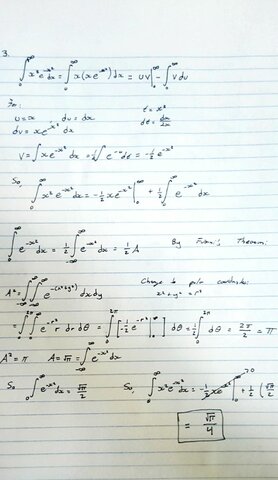 3.
∫₀^∞ x² e^{-x²} dx = ∫₀^∞ x(x e^{-x²}) dx = uv|₀^∞ - ∫₀^∞ v du
u = x du = dx t = x²
dv = x e^{-x²} dx
V = ∫ x e^{-x²} dx = -½ e^{-x²}
So, ∫₀^∞ x² e^{-x²} dx = -½ x e^{-x²} |₀^∞ + ½ ∫₀^∞ e^{-x²} dx
∫₀^∞ e^{-x²} dx = ½ ∫_{-∞}^∞ e^{-x²} dx = ½ A By Theorem:
A² = ∫_{-∞}^∞ ∫_{-∞}^∞ e^{-(x²+y²)} dx dy Change to polar coordinates: x² + y² = r²
= ∫₀^{2π} ∫₀^∞ e^{-r²} r dr dθ = ∫₀^{2π} [-½ e^{-r²} |₀^∞] dθ = ½ ∫₀^{2π} dθ = 2π/2 = π
A² = π A = √π = ∫_{-∞}^∞ e^{-x²} dx
So ∫₀^∞ e^{-x²} dx = √π/2 So, ∫₀^∞ x² e^{-x²} dx = -½ x e^{-x²} |₀^∞ 0 + ½ (√π/2
= √π/4